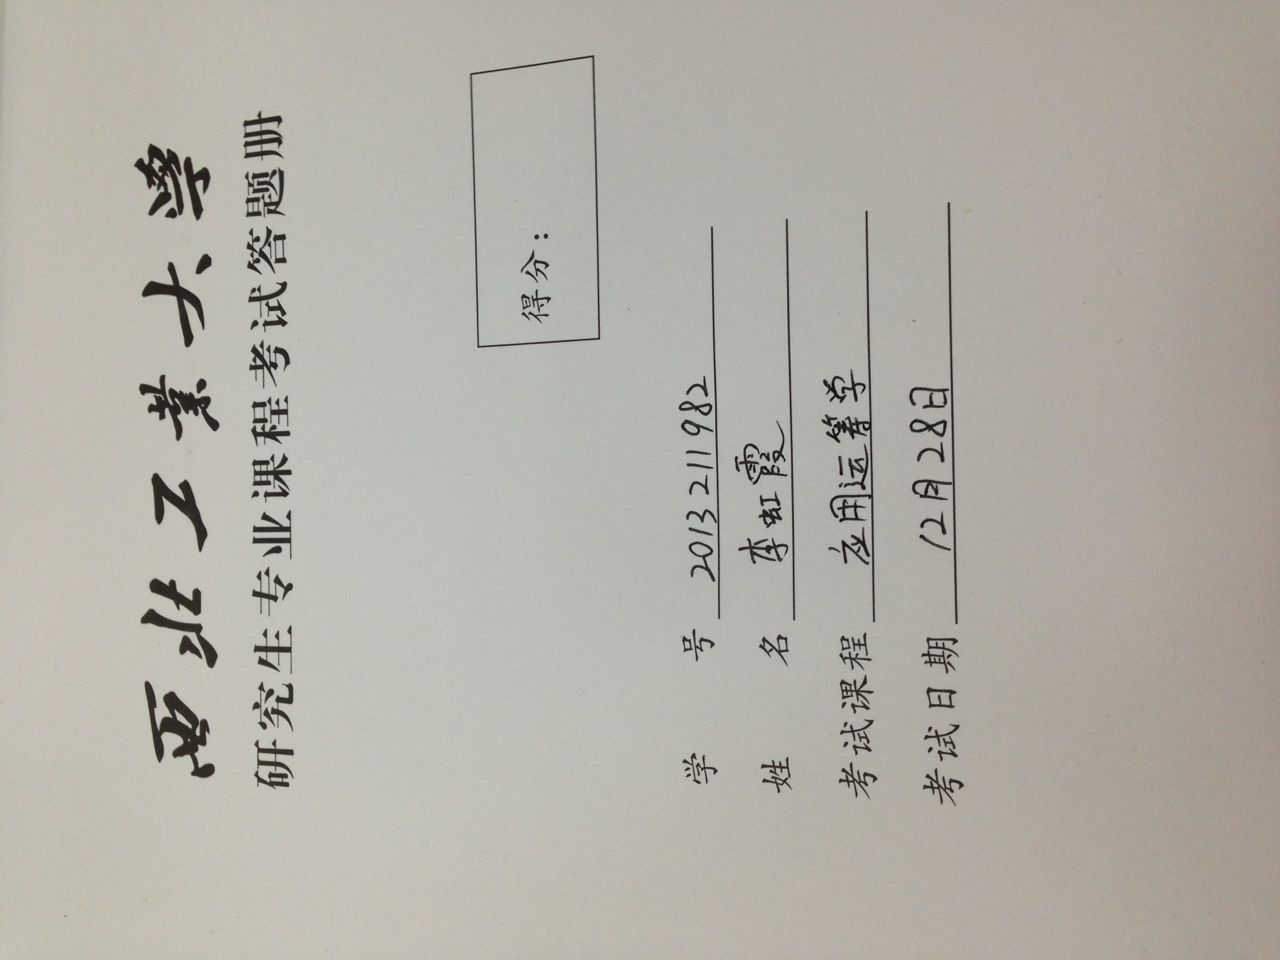 西北工業大學
研究生专业课程考试答题册
得分：
学 号 2013211982
姓 名 李虹霞
考试课程 应用运筹学
考试日期 12月28日